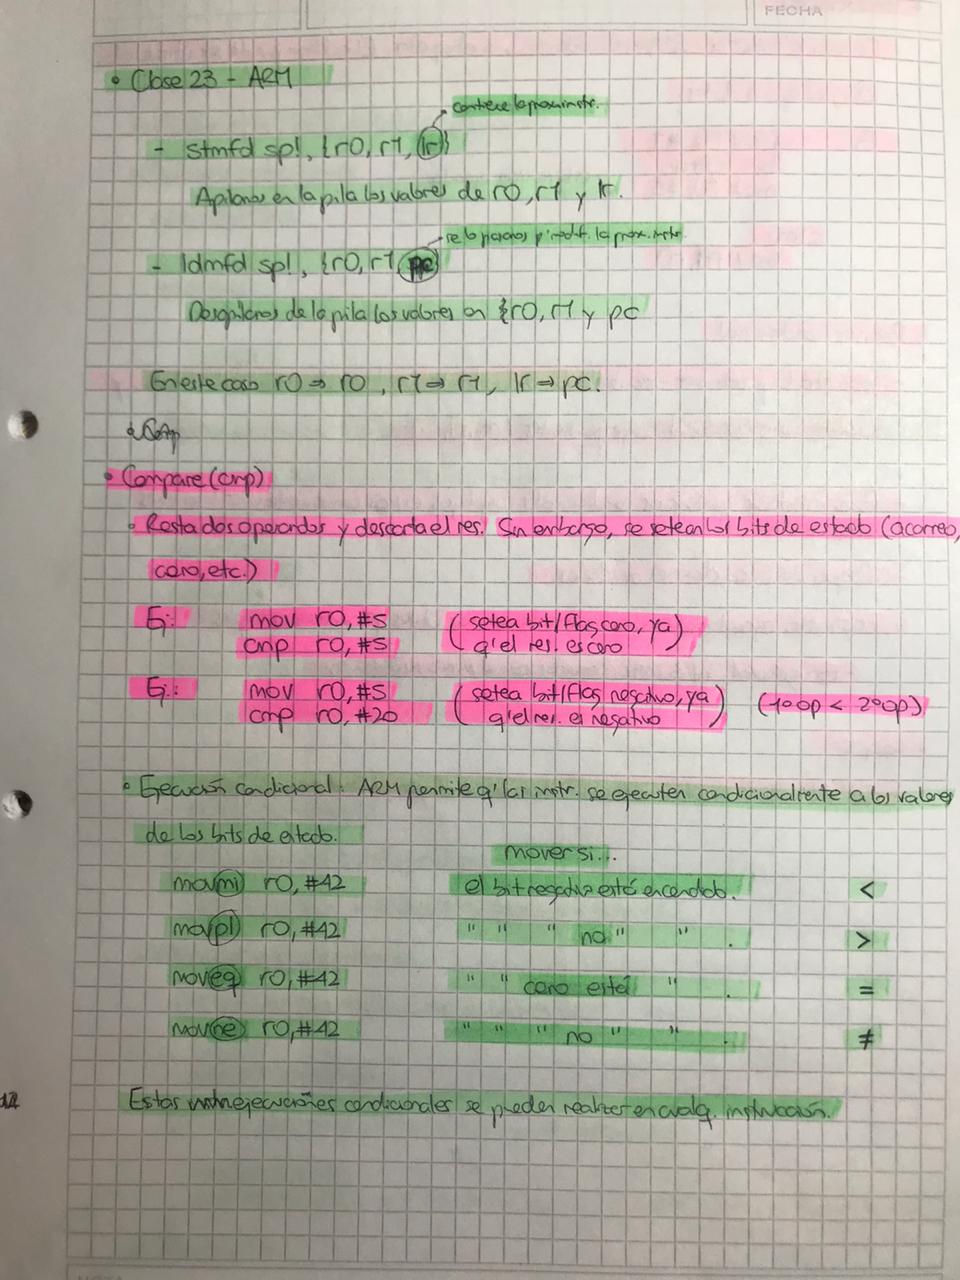 FECHA
• Clase 23 - ARM
contiene la prox instr.
- stmfd sp!, {r0, r1, lr}
Apilamos en la pila los valores de r0, r1 y lr.
se lo pasamos p' modif. la prox. instr.
- ldmfd sp!, {r0, r1, pc}
Desapilamos de la pila los valores en {r0, r1 y pc
En este caso r0 ⇒ r0, r1 ⇒ r1, lr ⇒ pc.
• Compare (cmp)
• Resta dos operandos y descarta el res. Sin embargo, se setean los bits de estado (acarreo,
cero, etc.)
Ej: mov r0, #5 (setea bit/flag cero, ya
cmp r0, #5 q' el res. es cero)
Ej: mov r0, #5 (setea bit/flag negativo, ya (1ºop < 2ºop)
cmp r0, #20 q' el res. es negativo)
• Ejecución condicional: ARM permite q' las instr. se ejecuten condicionalmente a los valores
de los bits de estado.
mover si...
movmi r0, #42 el bit negativo está encendido. <
movpl r0, #42 " " " no " " . >
moveq r0, #42 " " cero está " . =
movne r0, #42 " " " no " " . ≠
Estas ejecuciones condicionales se pueden realizar en cualq. instrucción.